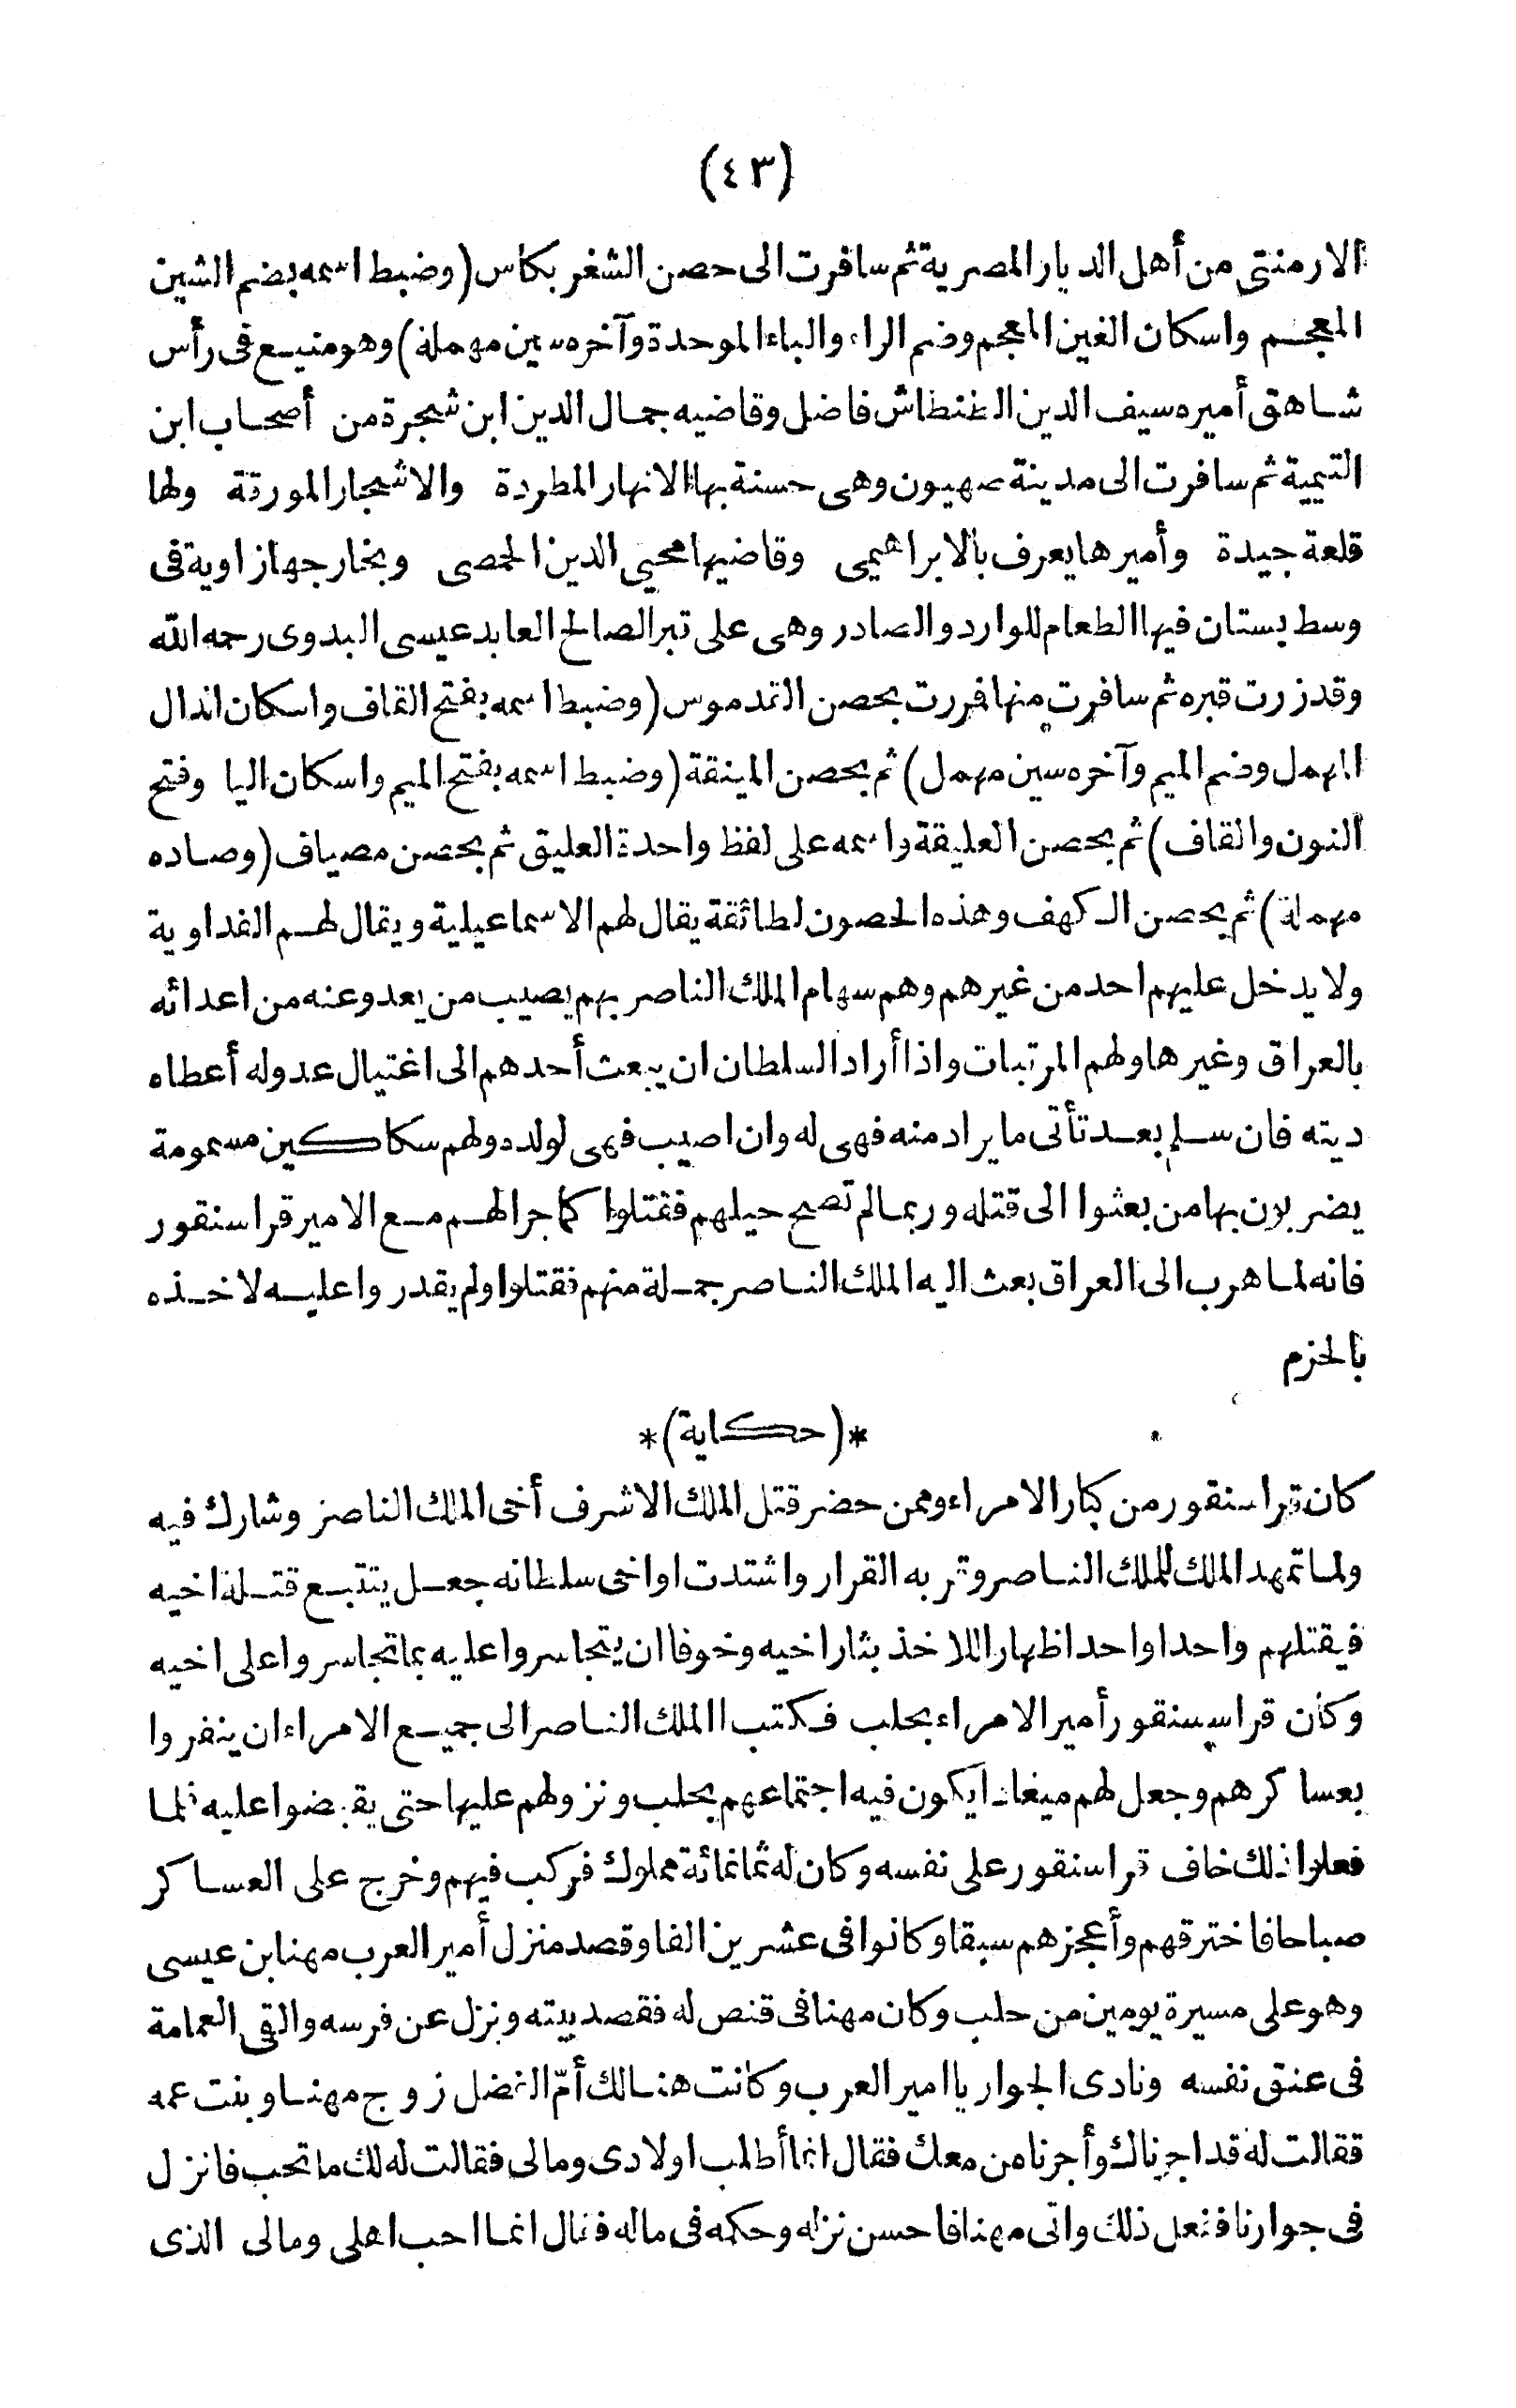 (٤٣)
الارمنتى من أهل الديار المصرية ثم سافرت الى حصن الشغر بكاس (وضبط اسمه بضم الشين
المعجم واسكان الغين المعجم وضم الراء والباء الموحدة وآخره سين مهملة) وهو منيع فى رأس
شاهق أميره سيف الدين الطنطاش فاضل وقاضيه جمال الدين ابن شجرة من أصحاب ابن
التيمية ثم سافرت الى مدينة صهيون وهى حسنة بها الانهار المطردة والاشجار المورقة ولها
قلعة جيدة وأميرها يعرف بالابراهيمى وقاضيها محيى الدين الحمصى وبخارجها زاوية فى
وسط بستان فيها الطعام للوارد والصادر وهى على قبر الصالح العابد عيسى البدوى رحمه الله
وقد زرت قبره ثم سافرت منها فررت بحصن القدموس (وضبط اسمه بفتح القاف واسكان الدال
المهمل وضم الميم وآخره سين مهمل) ثم بحصن المينقة (وضبط اسمه بفتح الميم واسكان اليا وفتح
النون والقاف) ثم بحصن العليقة واسمه على لفظ واحدة العليق ثم بحصن مصياف (وصاده
مهملة) ثم بحصن الكهف وهذه الحصون لطائفة يقال لهم الاسماعيلية ويقال لهم الفداوية
ولا يدخل عليهم احد من غيرهم وهم سهام الملك الناصر بهم يصيب من يعدو عنه من اعدائه
بالعراق وغيرها ولهم المرتبات واذا أراد السلطان ان يبعث أحدهم الى اغتيال عدو له أعطاه
ديته فان سلم بعد تأتى ما يراد منه فهى له وان اصيب فهى لولده ولهم سكاكين مسمومة
يضربون بها من بعثوا الى قتله وربما لم تصح حيلهم فقتلوا كما جرا لهم مع الامير قراسنقور
فانه لما هرب الى العراق بعث اليه الملك الناصر جملة منهم فقتلوا ولم يقدروا عليه لاخذه
بالحزم
*(حكاية)*
كان قراسنقور من كبار الامراء وممن حضر قتل الملك الاشرف أخى الملك الناصر وشارك فيه
ولما تمهد الملك للملك الناصر وقر به القرار واشتدت اواخى سلطانه جعل يتتبع قتلة اخيه
فيقتلهم واحدا واحدا اظهارا للاخذ بثار اخيه وخوفا ان يتجاسروا عليه بما تجاسروا على اخيه
وكان قراسنقور أمير الامراء بحلب فكتب الملك الناصر الى جميع الامراء ان ينفروا
بعساكرهم وجعل لهم ميعادا يكون فيه اجتماعهم بحلب ونزولهم عليها حتى يقبضوا عليه فلما
فعلوا ذلك خاف قراسنقور على نفسه وكان له ثمانمائة مملوك فركب فيهم وخرج على العساكر
صباحا فاخترقهم وأعجزهم سبقا وكانوا فى عشرين الفا وقصد منزل أمير العرب مهنا بن عيسى
وهو على مسيرة يومين من حلب وكان مهنا فى قنص له فقصد بيته ونزل عن فرسه والقى العمامة
فى عنق نفسه ونادى الجوار يا امير العرب وكانت هنالك أمّ الفضل زوج مهنا وبنت عمه
فقالت له قد اجرناك وأجرنا من معك فقال انما أطلب اولادى ومالى فقالت له لك ما تحب فانزل
فى جوارنا ففعل ذلك واتى مهنا فاحسن نزله وحكمه فى ماله فقال انما احب اهلى ومالى الذى